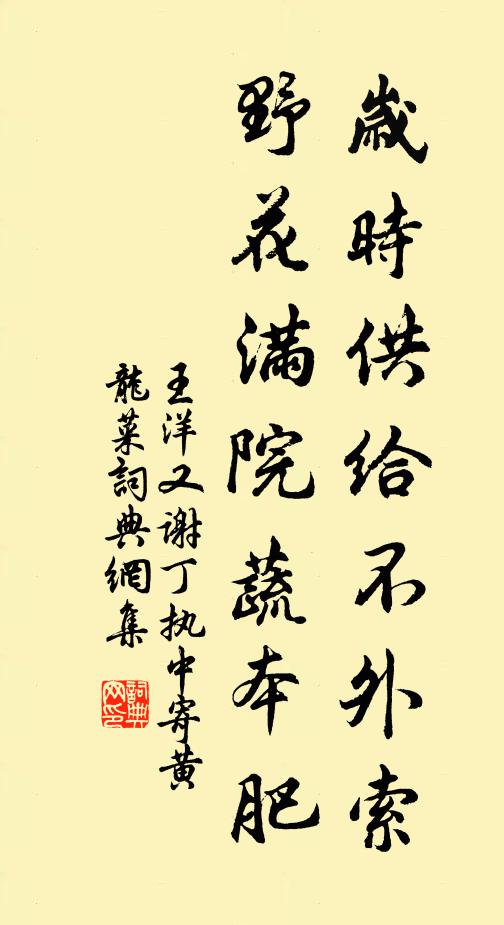 歲時供給不外索
野花滿院蔬本肥
王洋又谢丁执中寄黄
龍菜詞典網集
詞典
网印